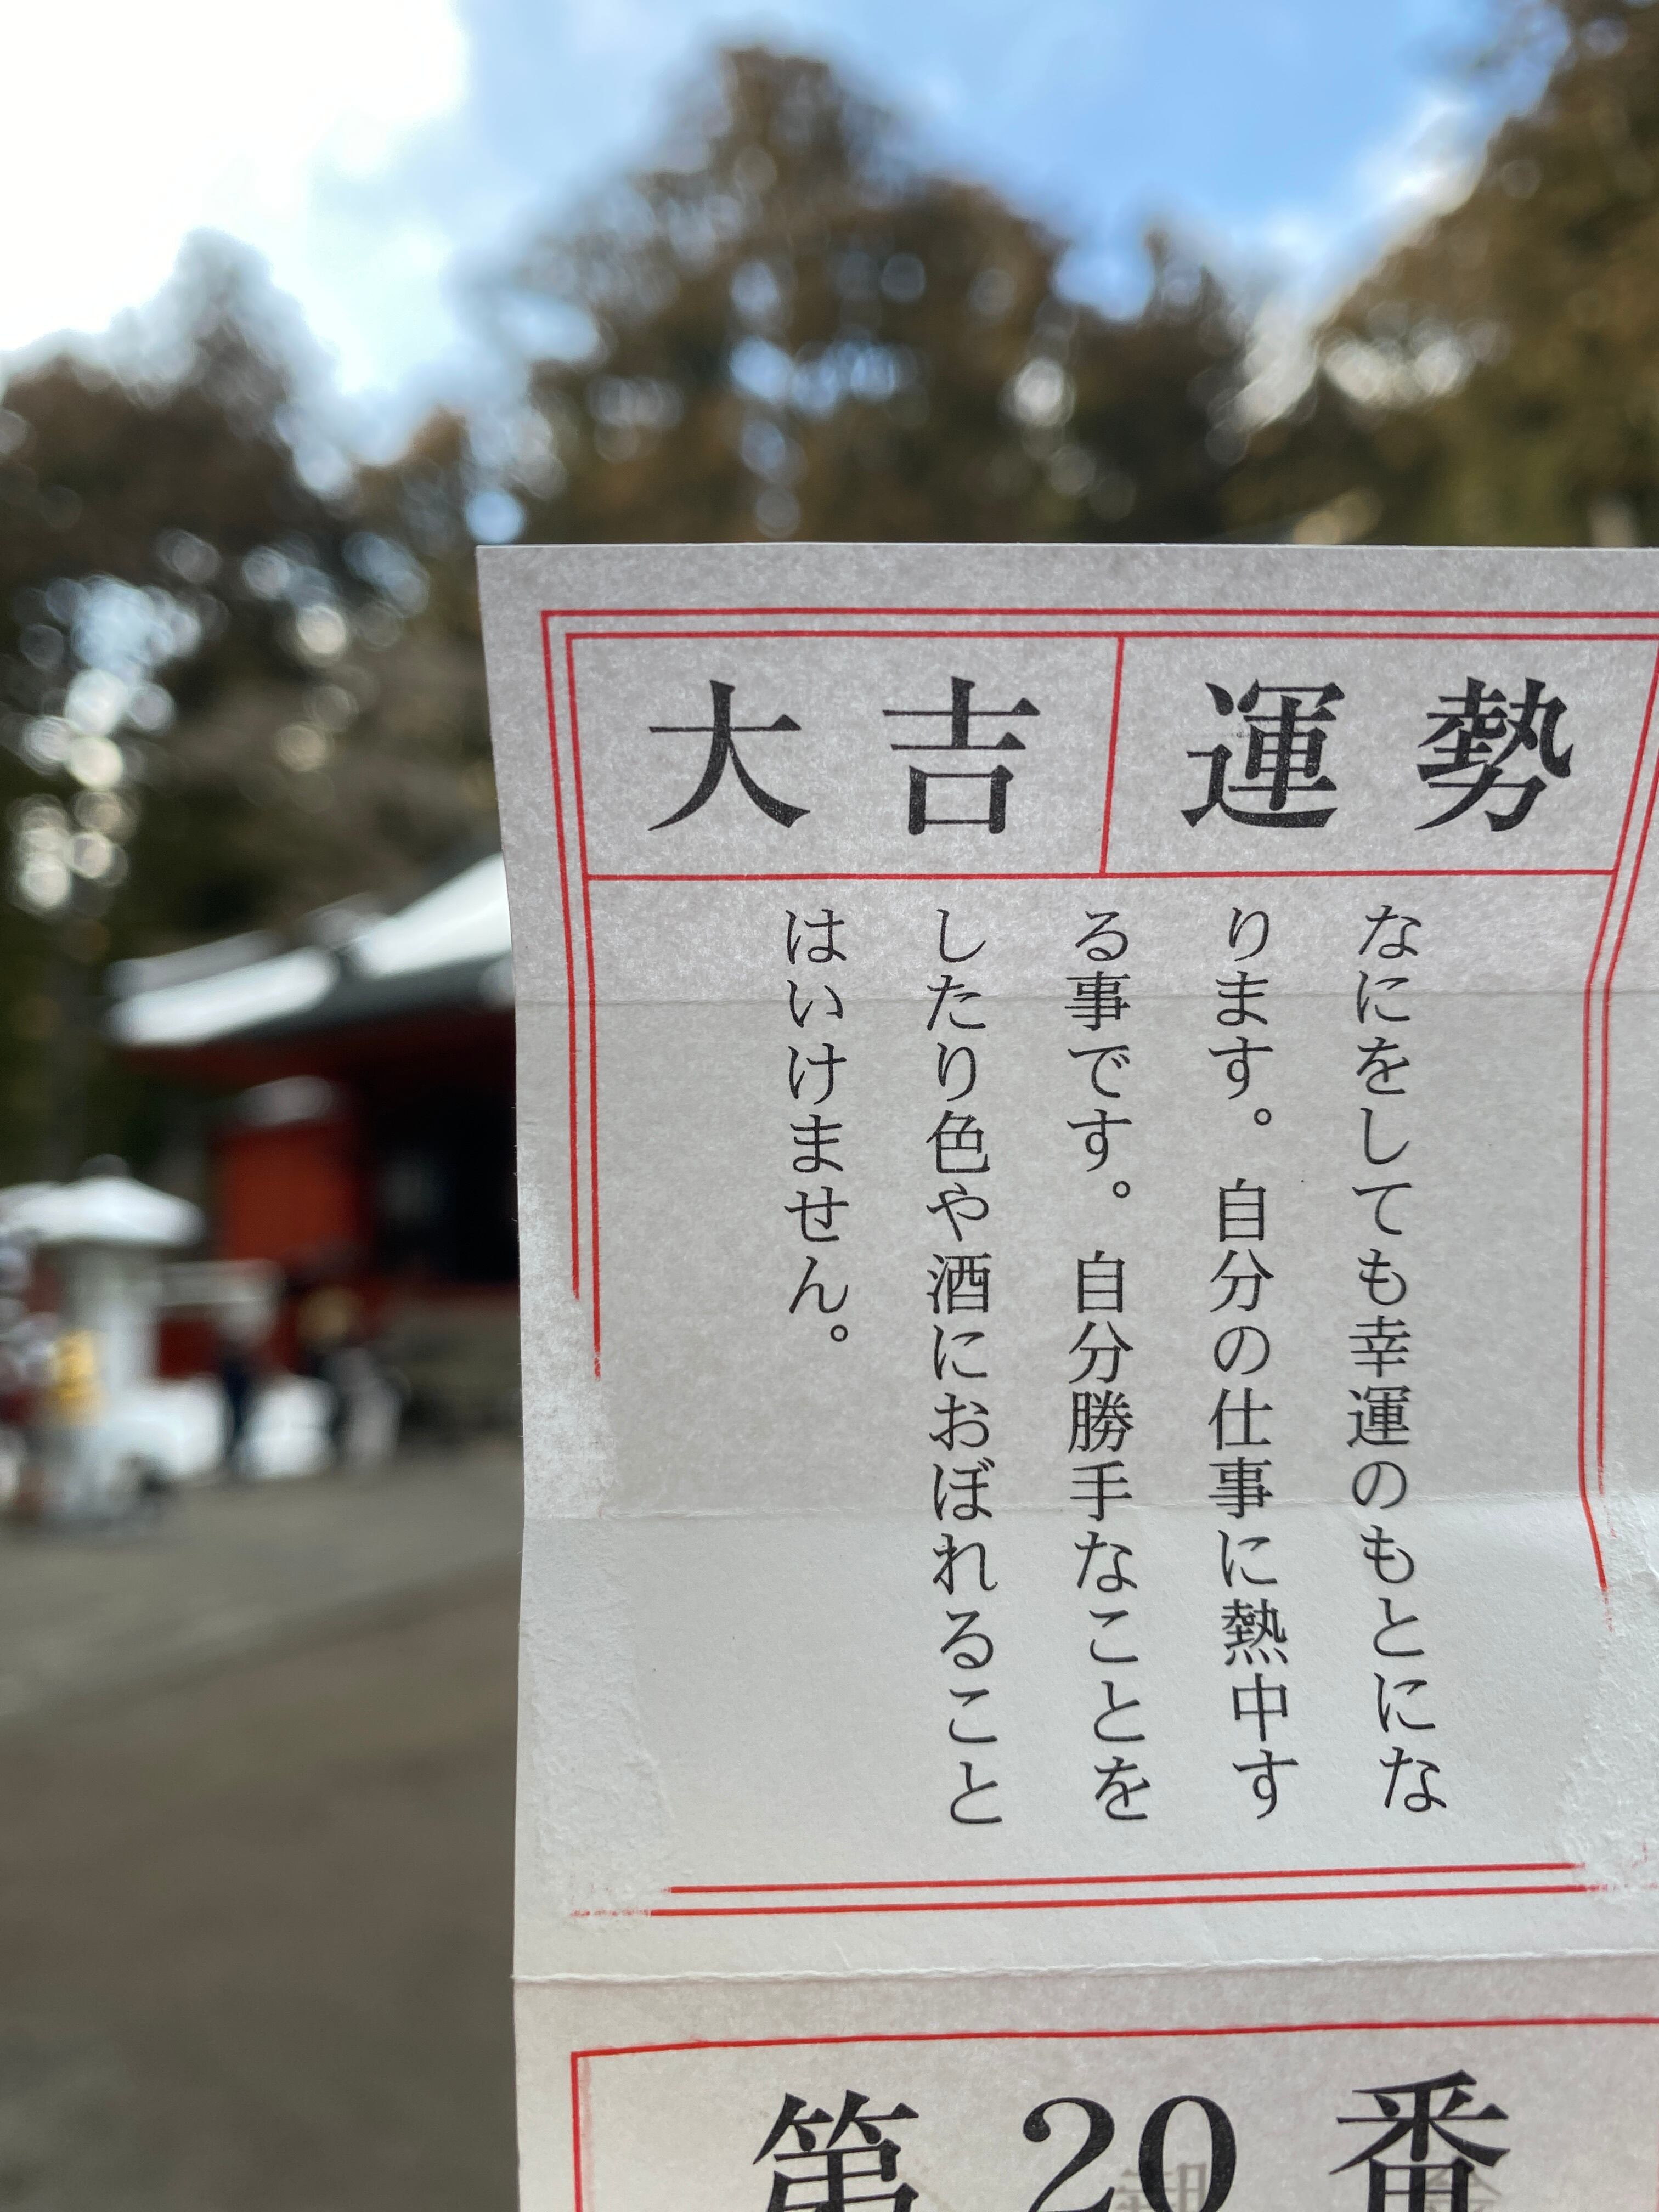 大吉 運勢
なにをしても幸運のもとにな
ります。自分の仕事に熱中す
る事です。自分勝手なことを
したり色や酒におぼれること
はいけません。
第20番